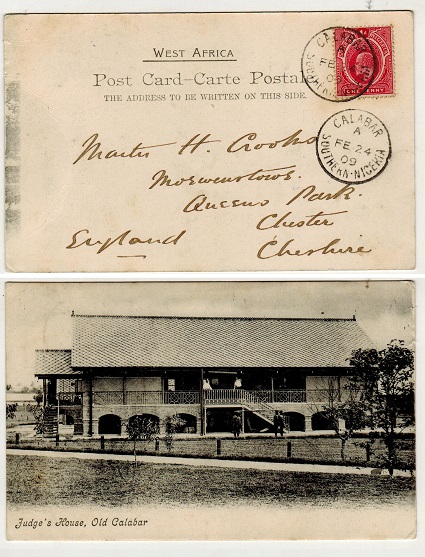 WEST AFRICA
Post Card–Carte Postale
THE ADDRESS TO BE WRITTEN ON THIS SIDE.
CALABAR
SOUTHERN
ONE PENNY
CALABAR
A
FE 24
09
SOUTHERN·NIGERIA
Master H. Crooks
Queens Park.
Chester
England
Cheshire
Judge's House, Old Calabar